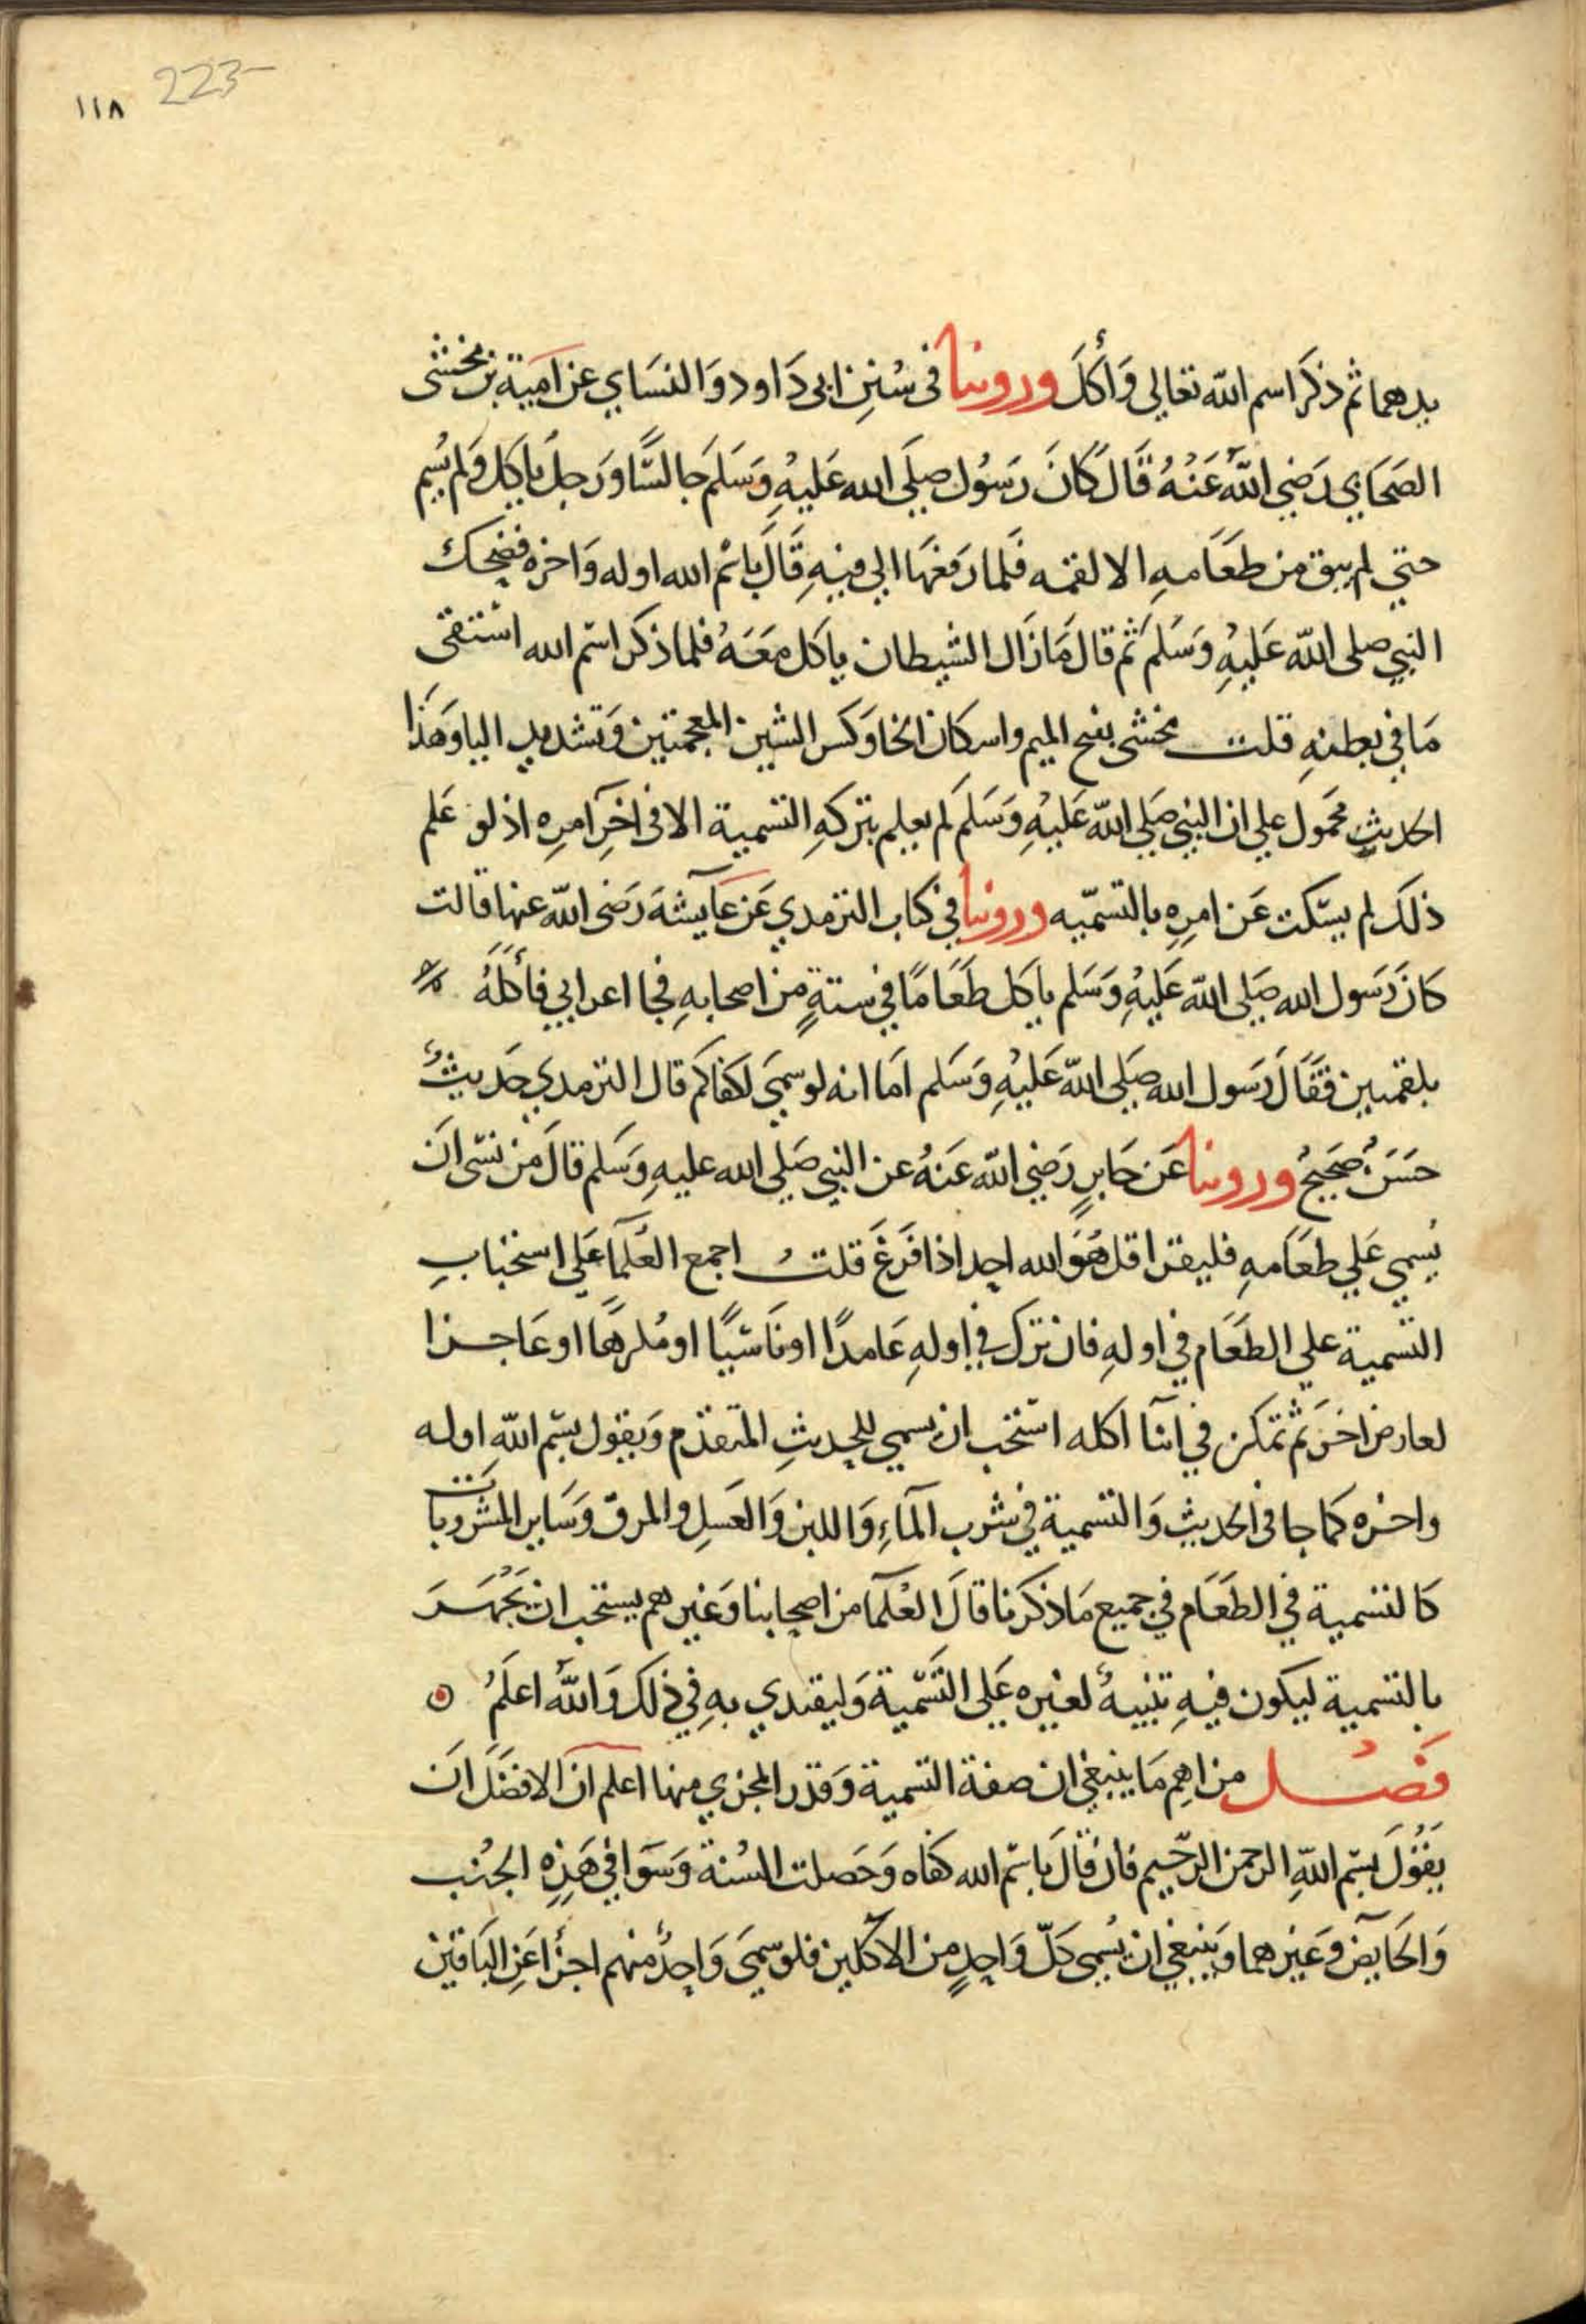 ١١٨ 223
يدهما ثم ذكر اسم الله تعالى وَأكَلَ وروينا فى سُنِنِ ابى دَاود وَالنسَاي عن امَية بن مخشى
الصَحَابي رَضِي اللّهُ عَنْهُ قَالَ كَانَ رَسُول صلي الله عَليْهِ وَسَلمَ جَالسًّا وَرَجلُ ياكل وَلم يُسِم
حتي لم يبق من طعَامهِ الا لقمه فَلما رَفعَهَا الي فيهِ قَالَ باسْم الله اوله وَاخره فضحك
النبي صلى اللّه عَليْهِ وَسَلمَ ثم قال مَا زَال الشيطان ياكل معَهُ فلما ذكر اسْم الله استقى
مَا في بطنهِ قلت مخشى بفتح الميم واسكان الخا وَكسر الشين المعجمتين وَتشديد اليا وَهَذا
الحديث محمول علي ان النبي صَلي اللّه عَليْهِ وَسَلمَ لم يعلم بتركهِ التسمية الا فى اخِر امرِه اذ لو عَلم
ذلكَ لم يسكت عَن امرِهِ بالتسمّيه وروينا في كتاب الترمدي عَن عَآيشة رَضى اللّه عنها قالت
كانَ رَسول الله صَلى اللّه عَليْهِ وَسَلم ياكل طَعَامًا في ستةٍ من اصحابهِ فجا اعرابي فأكلَهُ
بلقمتين فقَالَ رَسول الله صَلي اللّه عَليْهِ وَسَلم امَا انه لو سمي لكفاكم قال الترمدي حَديثُ
حَسَنُ صَحيحُ وروينا عَن جَابرٍ رَضِي اللّه عَنهُ عن النبي صَلي الله عليهِ وَسَلم قالَ من نسى انَ
يُسمي عَلي طعَامهِ فليقرا قل هُوَ الله احد اذا فَرَغَ قلتُ اجمع العُلمآ عَلي استحبابِ
التسمية علي الطعَام في اولهِ فان ترك في اولهِ عَامدًا او نَاسيًا او مُكرهًا او عَاجزا
لعارض اخَر ثم تمكن في اثنآ اكله استحب ان يسمي للحديثِ المتقدم وَيقول بسِم اللّهِ اوله
واخره كما جا فى الحديث وَالتسمية في شرب المآءِ وَاللبن وَالعَسلِ والمرق وَسَاير المشروبات
كالتسمية في الطعَام في جميع مَا ذكرَنا قالَ العُلمآ من اصحابنا وَغيرهم يستحب ان يَجْهَرَ
بالتسمية ليكون فيهِ تنبيهُ لغيره عَلى التَسْمّية وَليقتدي بهِ في ذلكَ وَاللّهُ اعلَمُ
فصْل من اهِم مَا ينبغي ان صفة التسمية وَقدر المجزي منها اعلم ان الافضَل انَ
يقُولَ بسِم اللّهِ الرحمن الرحّيم فان قالَ باسِّم الله كفاه وَحَصلت السُنة وَسَوا في هَذِهِ الجُنب
وَالحَايض وَغيرهما وَينبغي ان يُسمى كلّ وَاحدٍ من الاكلين فلو سمي وَاحدُ منهم اجزأ عَنِ البَاقين